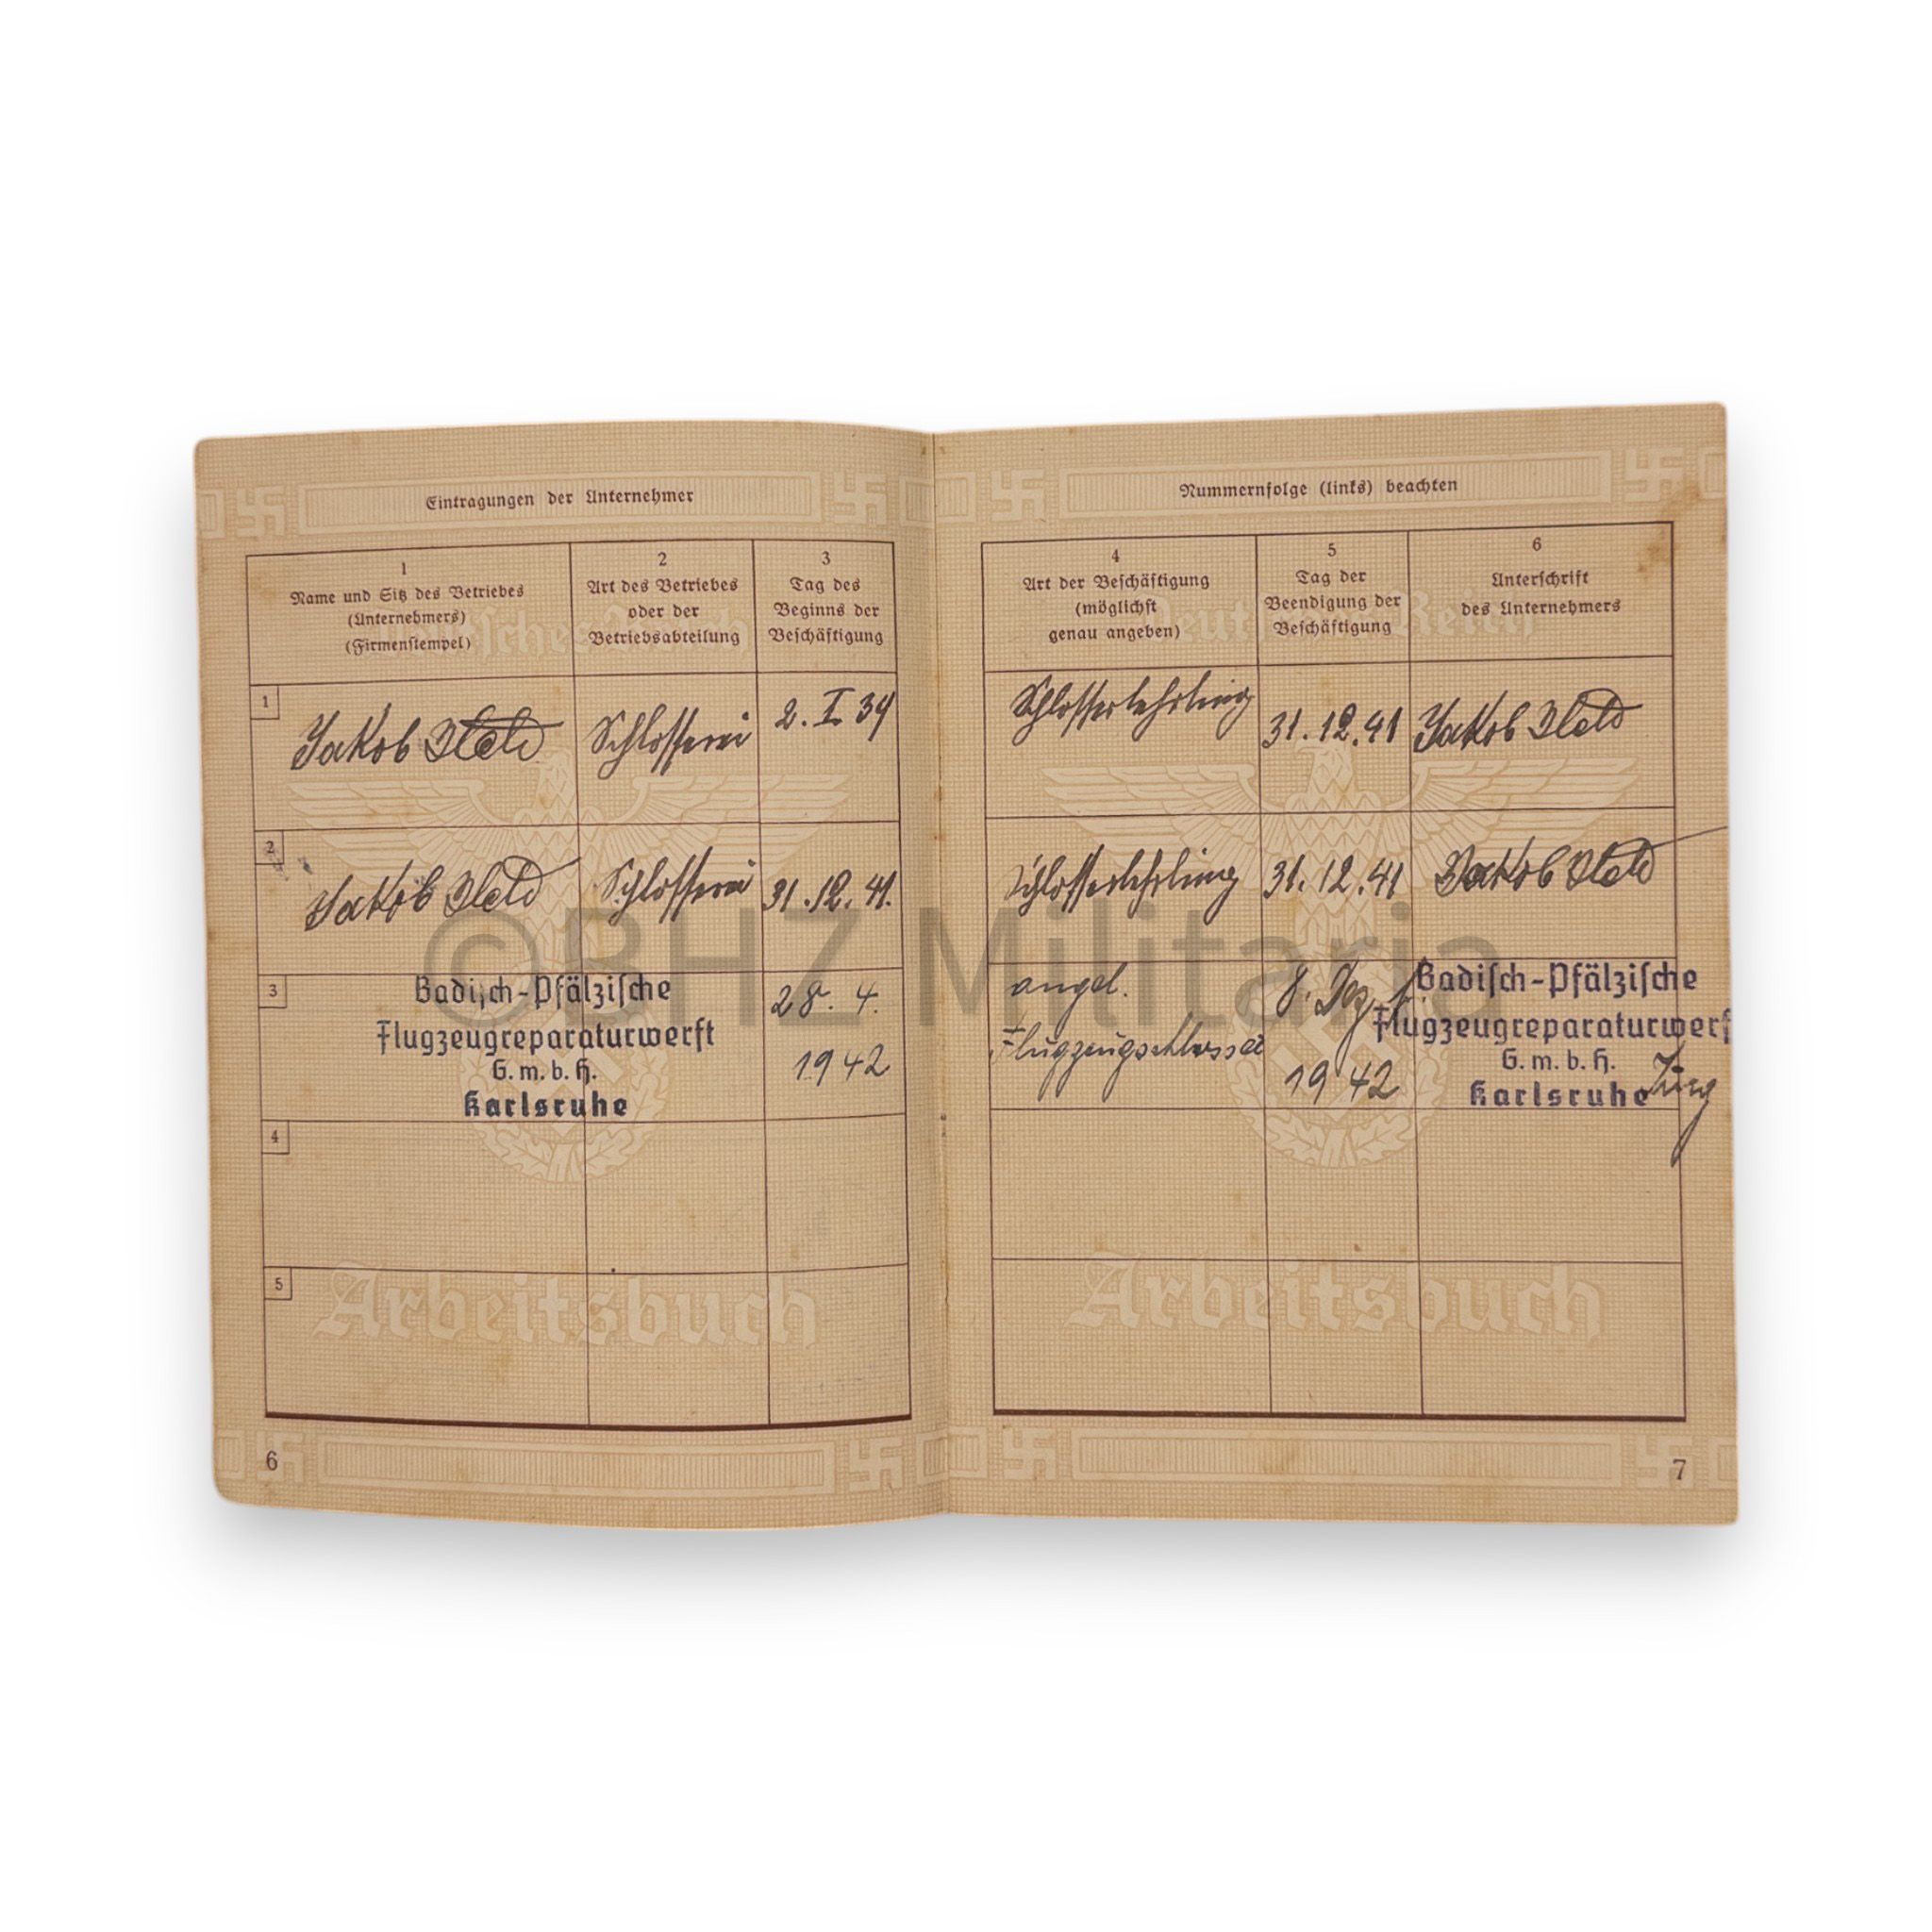 Eintragungen der Unternehmer
1
Name und Sitz des Betriebes
(Unternehmers)
(Firmenstempel)
2
Art des Betriebes
oder der
Betriebsabteilung
3
Tag des
Beginns der
Beschäftigung
1
Jakob
Schlosserei
2. I. 39
2
Jakob
Schlosserei
31.12.41.
3
Badisch-Pfälzische
Flugzeugreparaturwerft
G.m.b.H.
Karlsruhe
28. 4.
1942
4
5
Arbeitsbuch
6
Nummernfolge (links) beachten
4
Art der Beschäftigung
(möglichst
genau angeben)
5
Tag der
Beendigung der
Beschäftigung
6
Unterschrift
des Unternehmers
Deutsches Reich
Schlosserlehrling
31.12.41
Jakob
Schlosserlehrling
31.12.41
Jakob
angel.
Flugzeugschlosser
8. Dez.
1942
Badisch-Pfälzische
Flugzeugreparaturwerf
G.m.b.H.
Karlsruhe
Arbeitsbuch
7
©BHZ Militaria